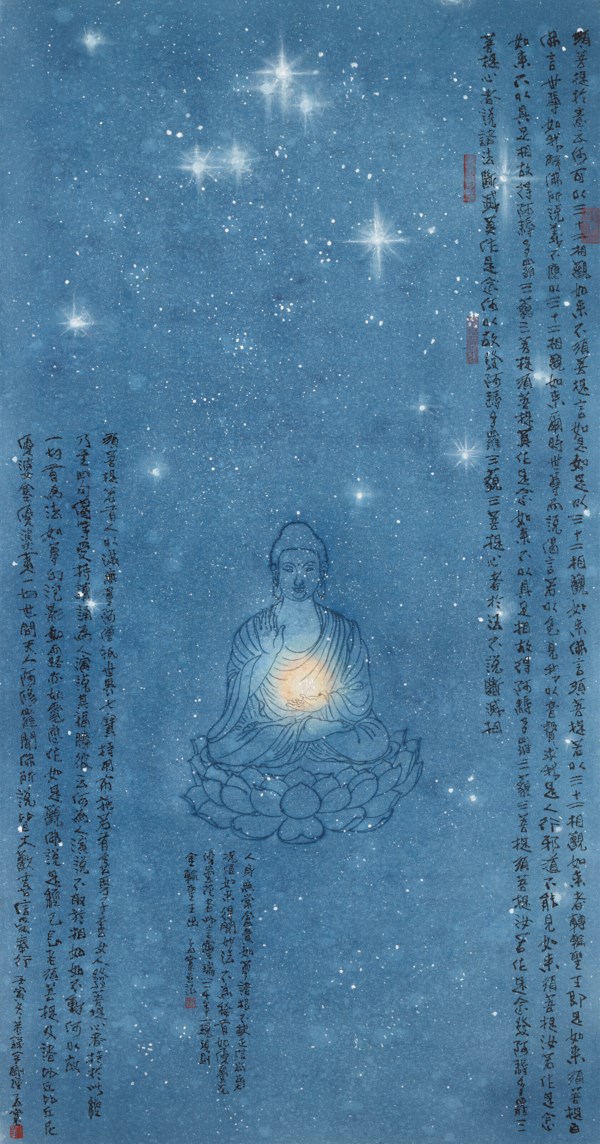 須菩提於意云何可以三十二相觀如來不須菩提言如是如是以三十二相觀如來佛言須菩提若以三十二相觀如來者轉輪聖王即是如來須菩提白
佛言世尊如我解佛所說義不應以三十二相觀如來爾時世尊而說偈言若以色見我以音聲求我是人行邪道不能見如來須菩提汝若作是念
如來不以具足相故得阿耨多羅三藐三菩提須菩提莫作是念如來不以具足相故得阿耨多羅三藐三菩提須菩提汝若作是念發阿耨多羅三
菩提心者說諸法斷滅莫作是念何以故發阿耨多羅三藐三菩提心者於法不說斷滅相
人身無常富貴如夢諸根不缺正信尚難
況值如來得聞妙法不為稀有如優曇花
須菩提若有人以滿無量阿僧祇世界七寶持用布施若有善男子善女人發菩提心者持於此經
乃至四句偈等受持讀誦為人演說其福勝彼云何為人演說不取於相如如不動何以故
一切有為法如夢幻泡影如露亦如電應作如是觀佛說是經已長老須菩提及諸比丘比丘尼
優婆塞優婆夷一切世間天人阿修羅聞佛所說皆大歡喜信受奉行